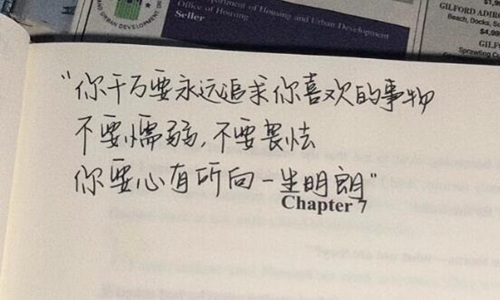 Department of Housing and Urban Development
Office of Housing
Seller
GILFORD
Beach, Docks,
"你千万要永远追求你喜欢的事物
不要懦弱，不要畏怯
你要心有所向一生明朗"
Chapter 7